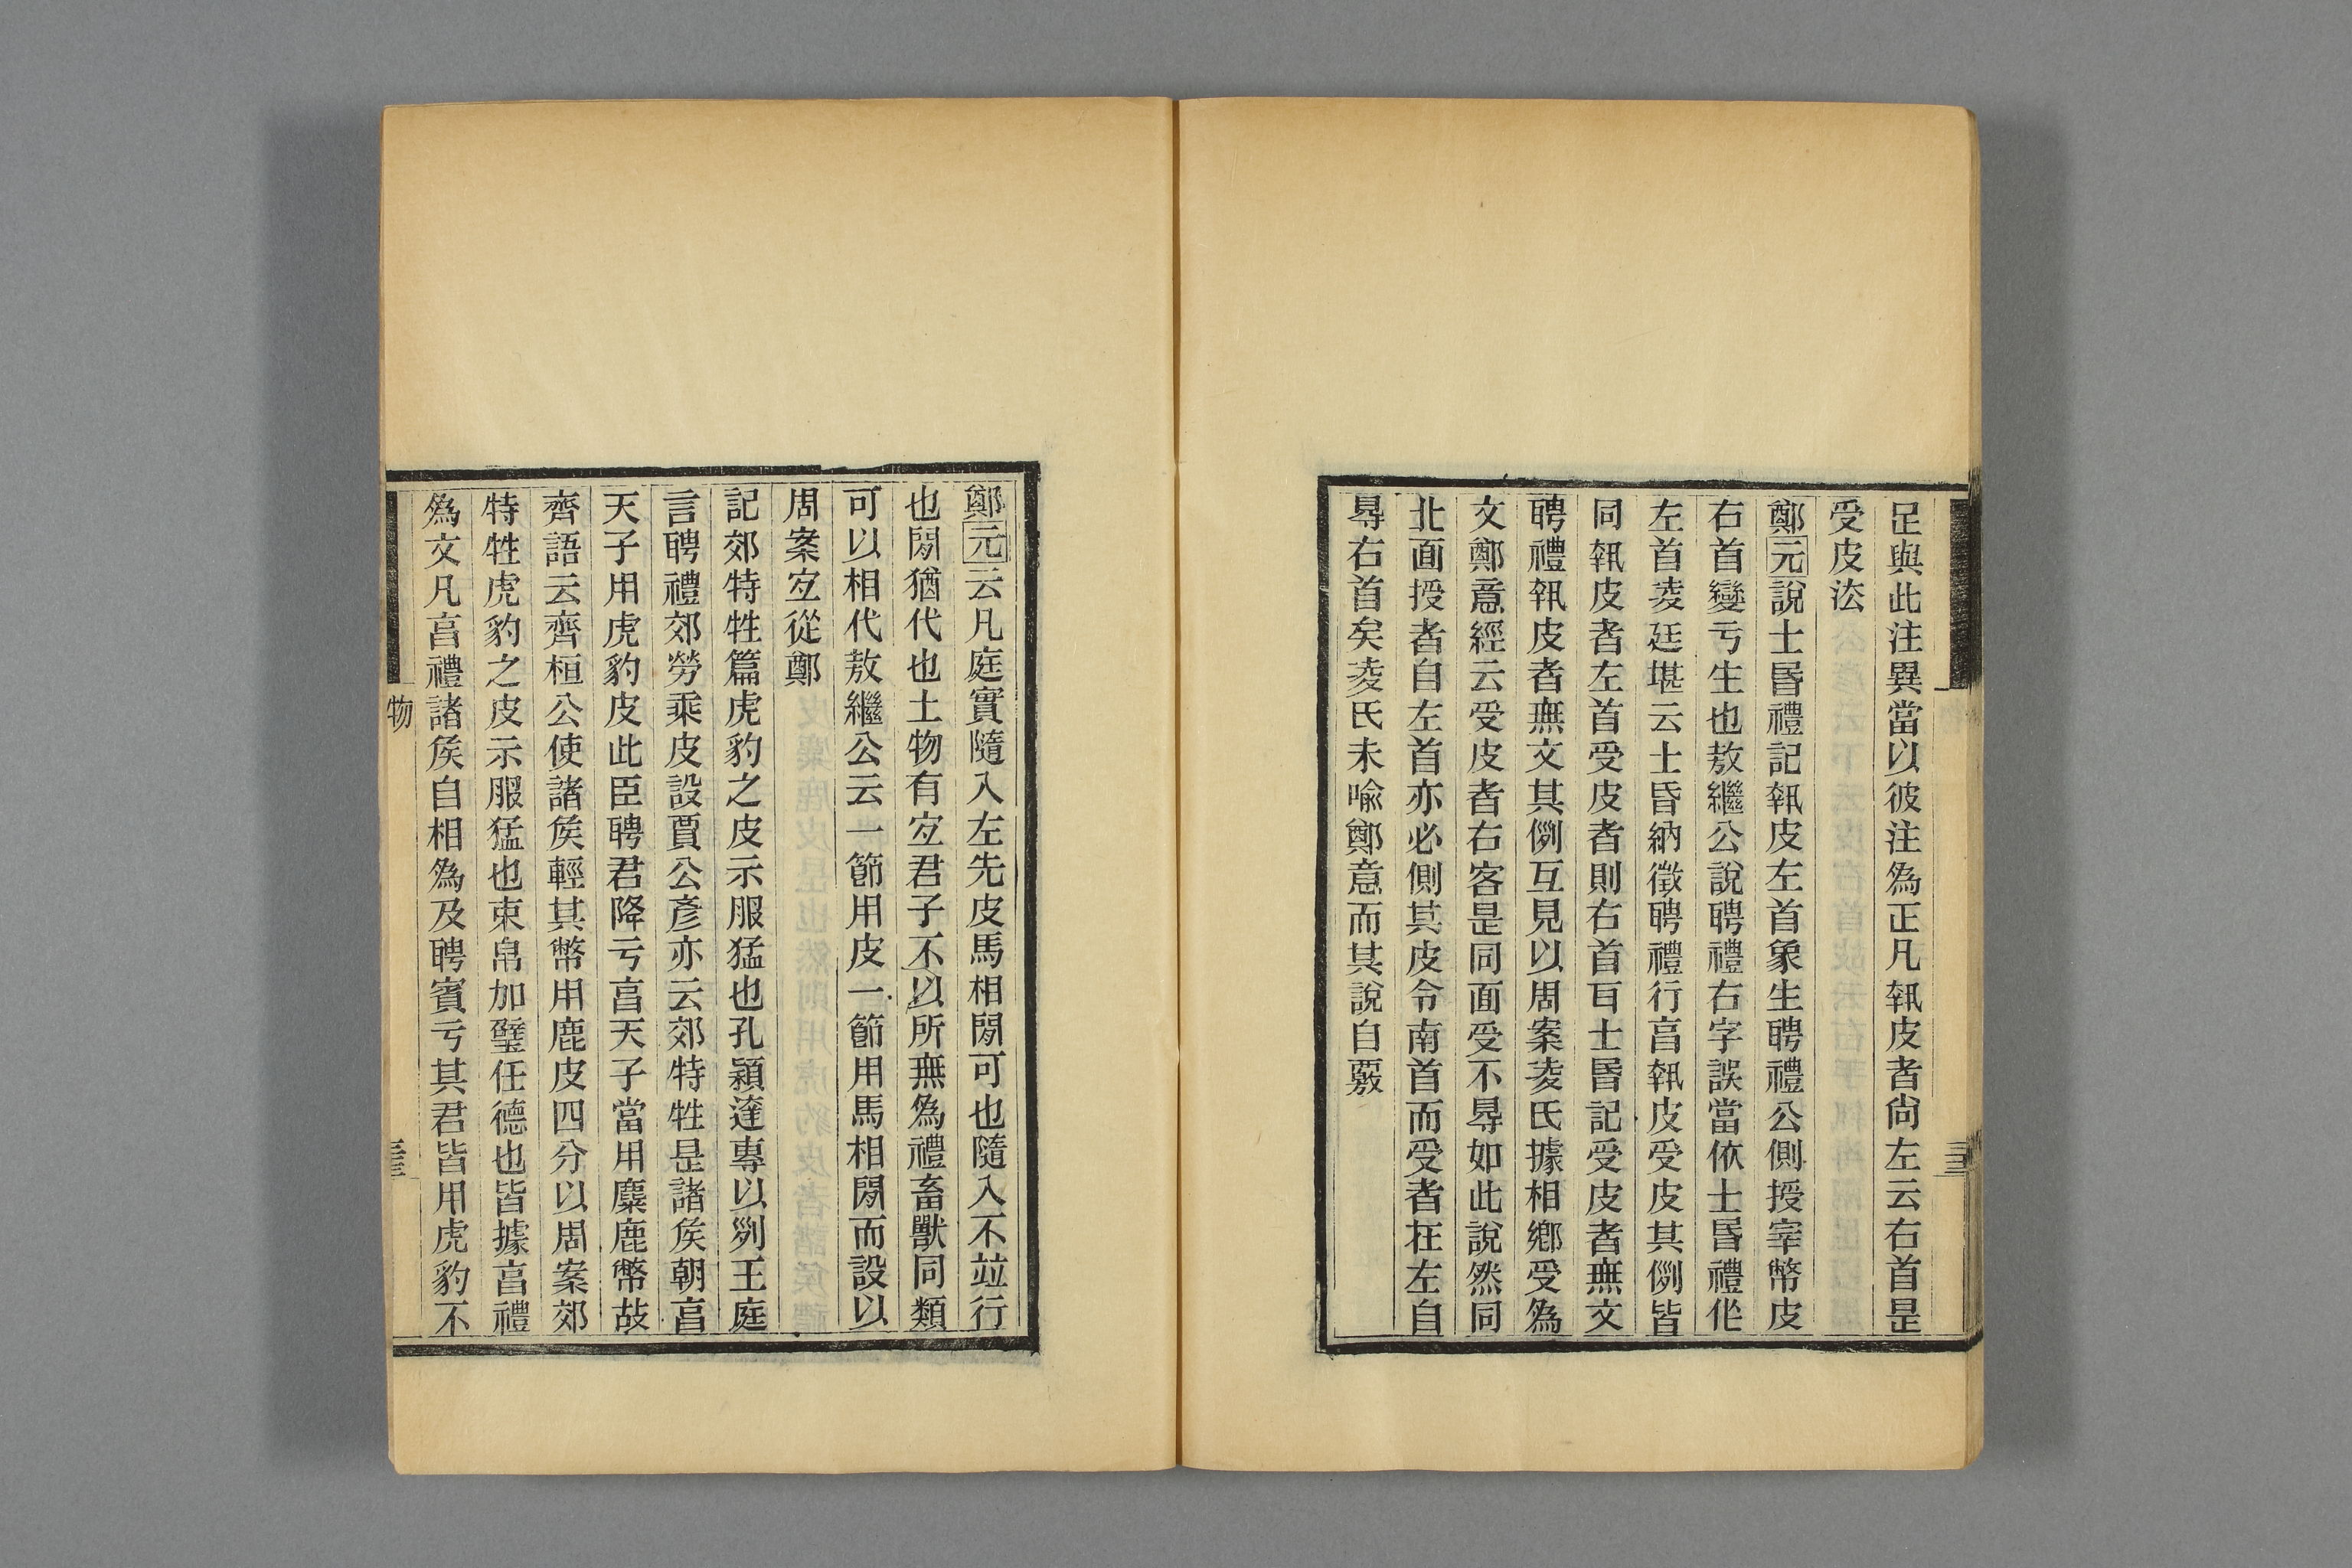 足與此注異當以彼注為正凡執皮者尙左云右首是
受皮法
鄭元說士昬禮記執皮左首象生聘禮公側授宰幣皮
右首變亏生也敖繼公說聘禮右字誤當依士昬禮作
左首凌廷堪云士昏納徵聘禮行亯執皮受皮其例皆
同執皮者左首受皮者則右首耳士昬記受皮者無文
聘禮執皮者無文其例互見以周案凌氏據相鄉受為
文鄭意經云受皮者右客是同面受不㝵如此說然同
北面授者自左首亦必側其皮令南首而受者在左自
㝵右首矣凌氏未喻鄭意而其說自覈
鄭元云凡庭實隨入左先皮馬相閒可也隨入不竝行
也閒猶代也土物有宜君子不以所無為禮畜獸同類
可以相代敖繼公云一節用皮一節用馬相閒而設以
周案宜從鄭
記郊特牲篇虎豹之皮示服猛也孔穎達專以列王庭
言聘禮郊勞乘皮設賈公彥亦云郊特牲是諸矦朝亯
天子用虎豹皮此臣聘君降亏亯天子當用麋鹿幣故
齊語云齊桓公使諸矦輕其幣用鹿皮四分以周案郊
特牲虎豹之皮示服猛也束帛加璧任德也皆據亯禮
為文凡亯禮諸矦自相為及聘賓亏其君皆用虎豹不
物